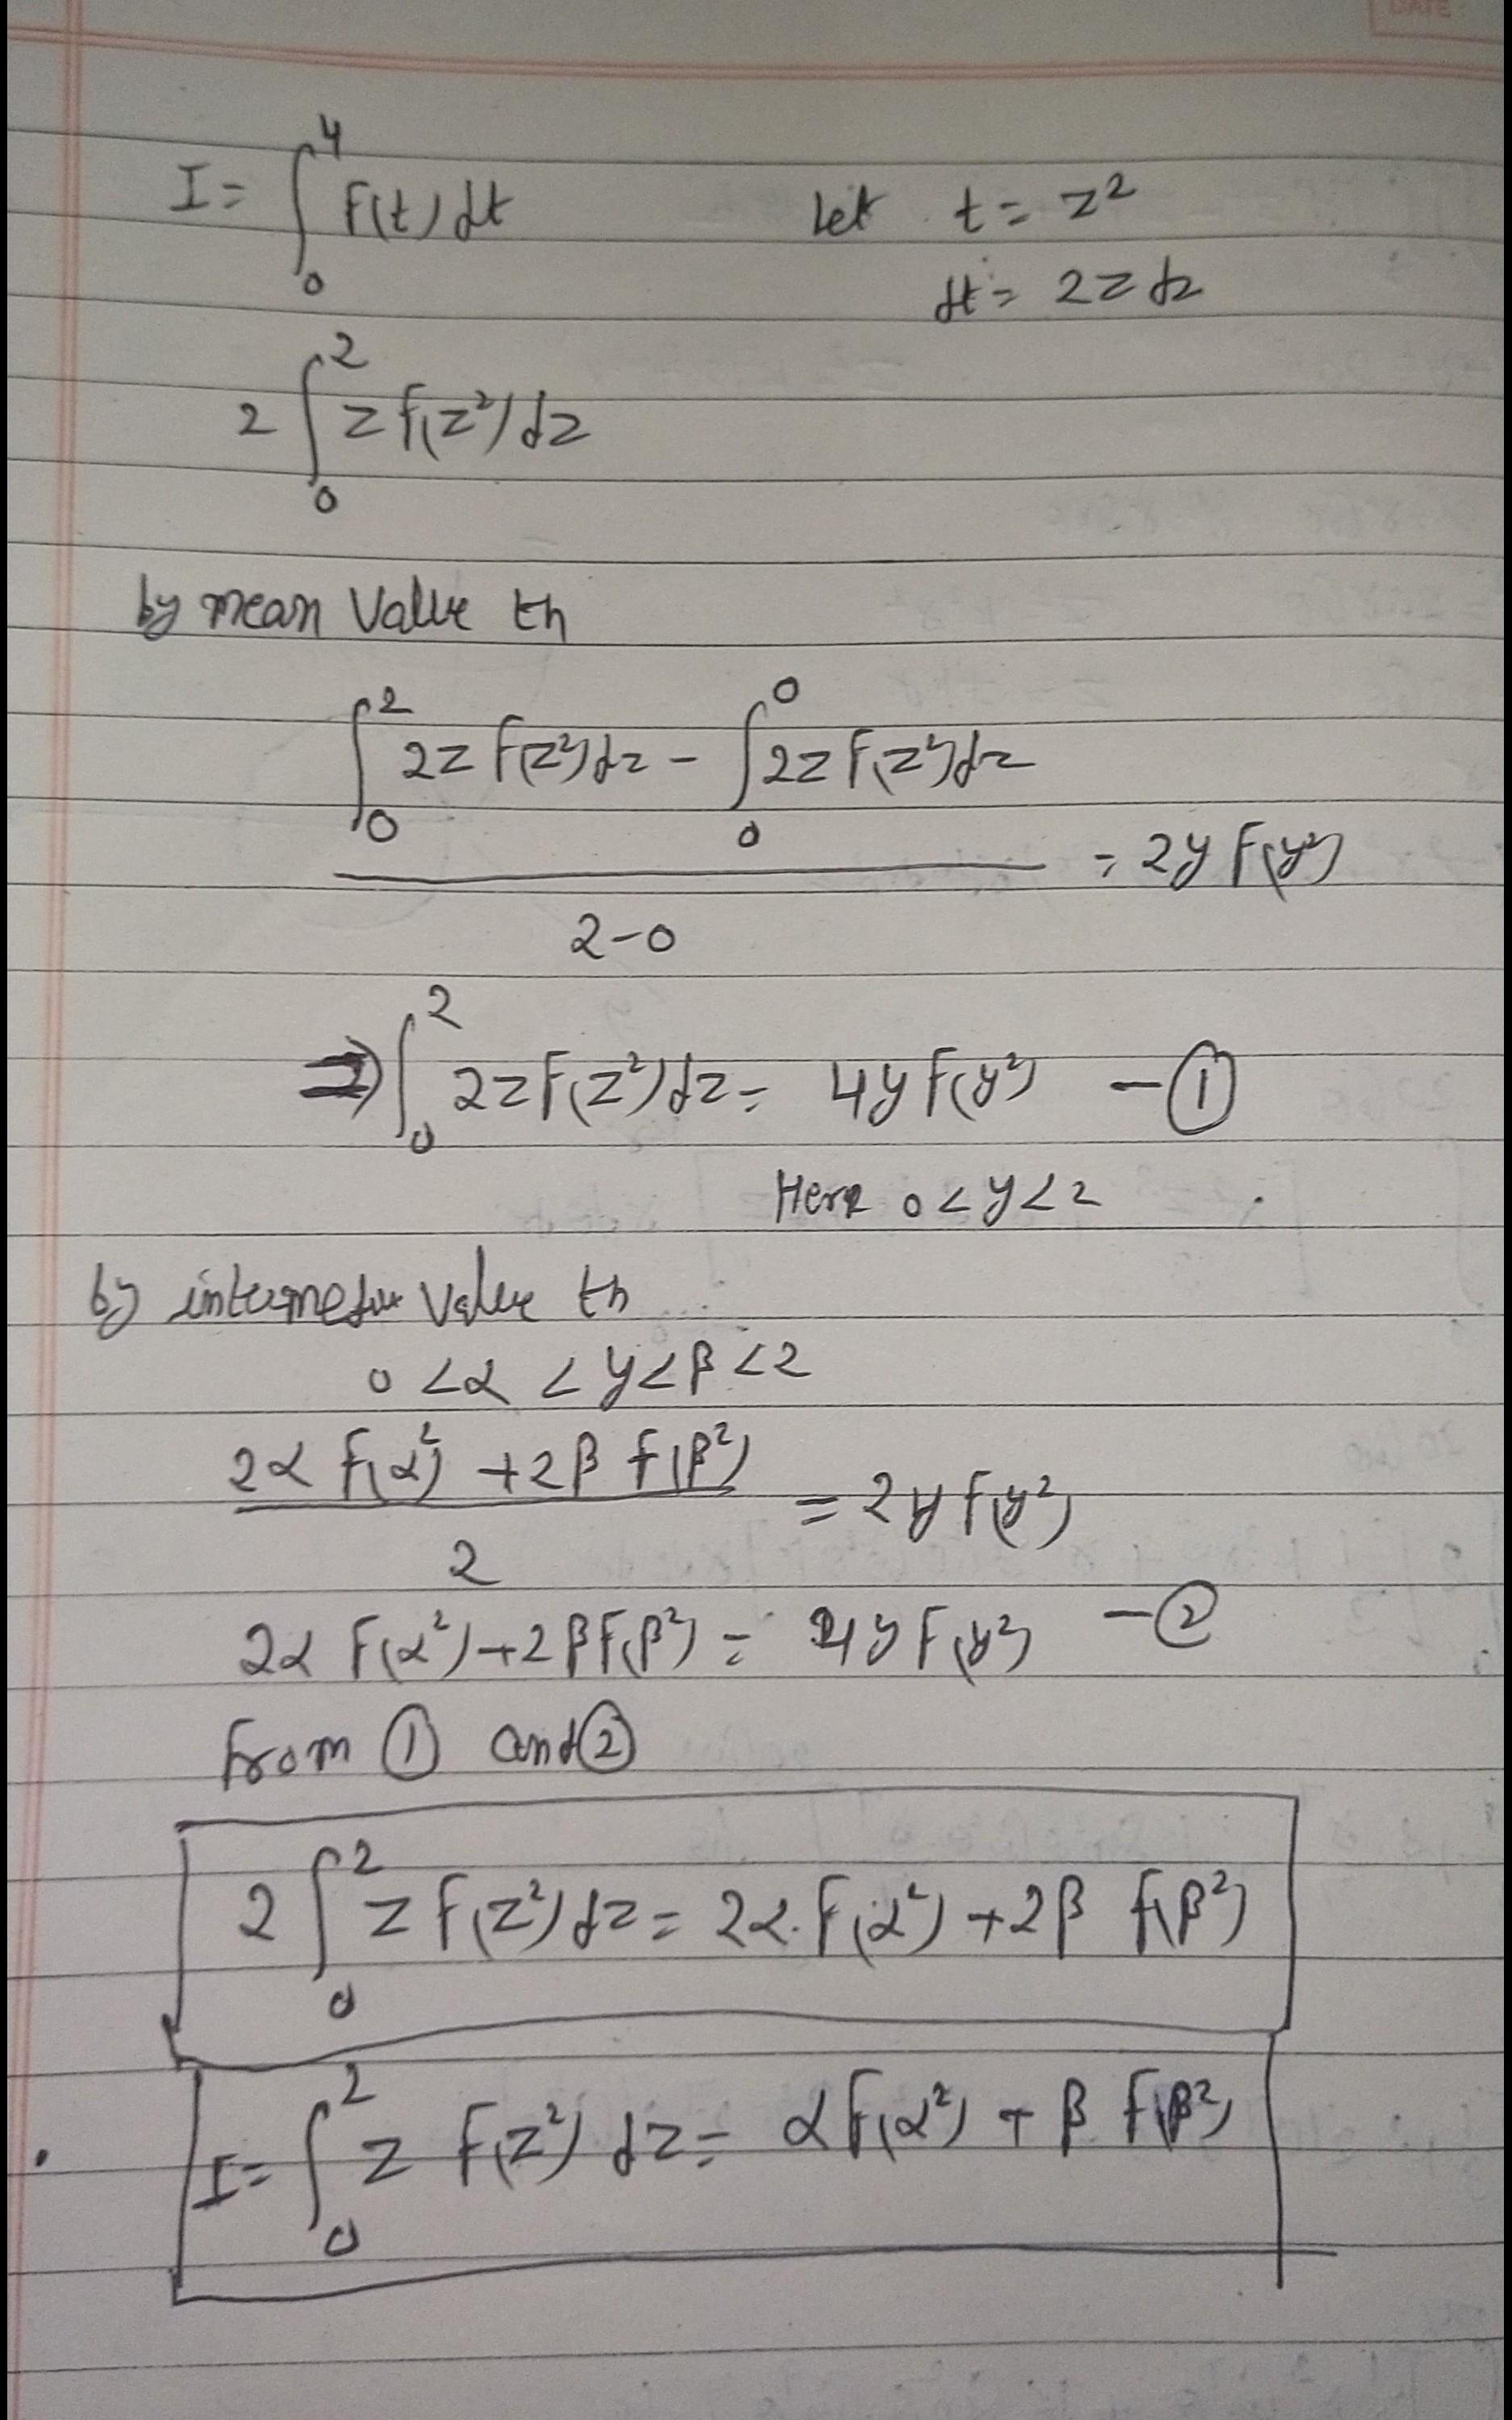 DATE
I = ∫₀⁴ f(t) dt    Let t = z²
dt = 2z dz
2 ∫₀² z f(z²) dz
by mean Value th
(∫₀² 2z f(z²) dz - ∫₀⁰ 2z f(z²) dz) / (2-0) = 2y f(y²)
⇒ ∫₀² 2z f(z²) dz = 4y f(y²) - ①
Here 0 < y < 2
by value th
0 < α < y < β < 2
(2α f(α²) + 2β f(β²)) / 2 = 2y f(y²)
2α f(α²) + 2β f(β²) = 4y f(y²) - ②
from ① and ②
2 ∫₀² z f(z²) dz = 2α. f(α²) + 2β f(β²)
I = ∫₀² z f(z²) dz = α f(α²) + β f(β²)